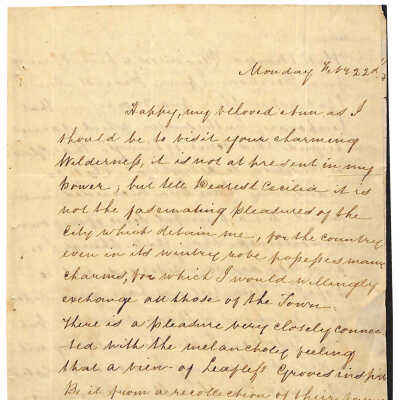 Monday Feby 22d.
Happy, my beloved Ann as I
should be to visit your charming
Wilderness, it is not at present in my
power, but tell Dearest Cecilia it is
not the fascinating pleasures of the
City which detain me, for the country
even in its wintry robe possesses many
charms, for which I would willingly
exchange all those of the Town.
There is a pleasure very closely connec
ted with the melancholy feeling
that a view of Leafless Groves
Be it from a recollection of their